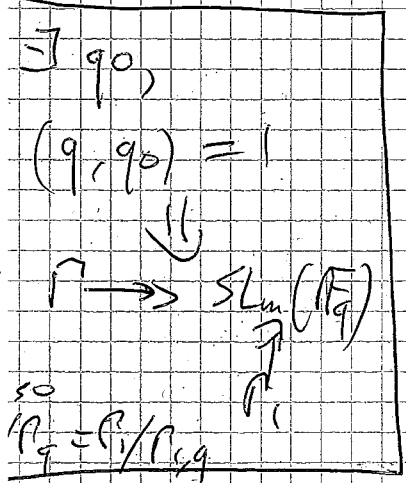 ∃ q0,
(q, q0) = 1
⇓
Γ ↠ SLm(𝔽q)
↑
Γi
so
Γq = Γi/Γi,q